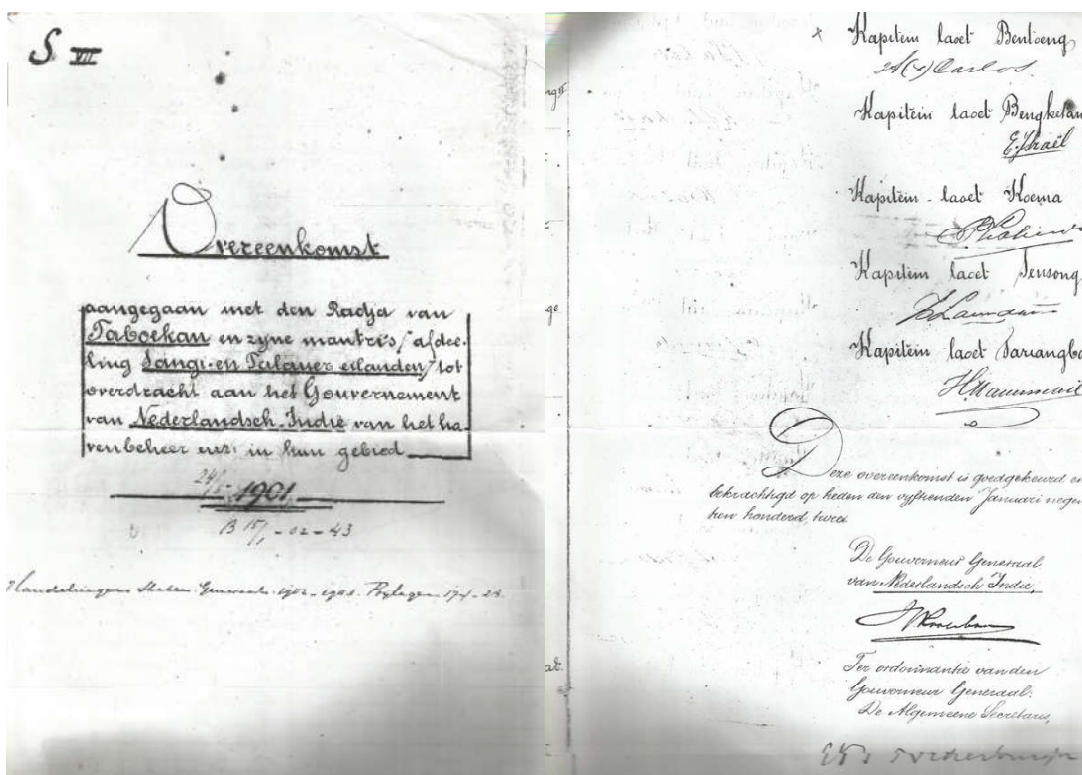 S VII
Overeenkomst
aangegaan met den Radja van
Taboekan en zyne mantri's (afdee-
ling Sangi- en Talauer eilanden) tot
overdracht aan het Gouvernement
van Nederlandsch-Indië van het ha-
venbeheer enz: in hun gebied
24/
1901
B 15/1 - 02 - 43
Handelingen Staten Generaal 1902-1903. Bylagen 174-23
Kapitein laoet Bentoeng
Carlos.
Kapitein laoet Bengketan
E. Israël
Kapitein - laoet Koema
Kapitein laoet Sensong
Kapitein laoet Tariangba
Deze overeenkomst is goedgekeurd en
bekrachtigd op heden den vyftienden Januari negen
tien honderd twee
De Gouverneur Generaal
van Nederlandsch Indie,
Ter ordonnantie van den
Gouverneur Generaal:
De Algemeene Secretaris,